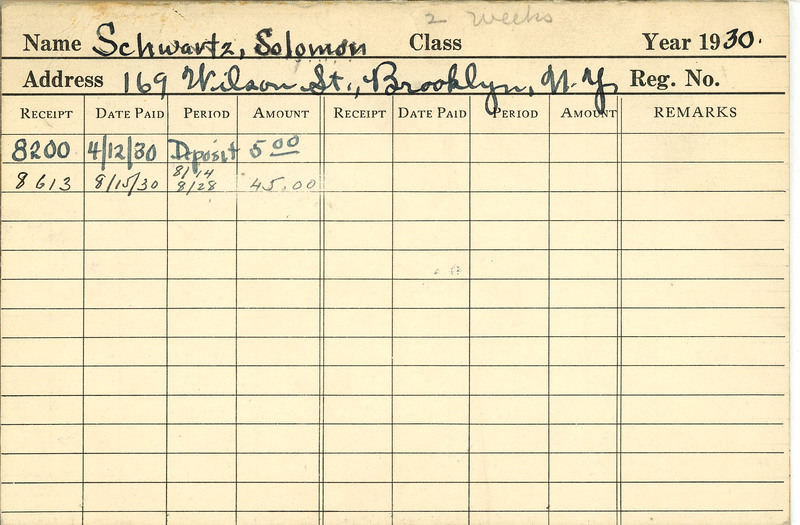 2 weeks
Name Schwartz, Solomon Class Year 1930.
Address 169 Wilson St., Brooklyn, N.Y. Reg. No.
RECEIPT DATE PAID PERIOD AMOUNT RECEIPT DATE PAID PERIOD AMOUNT REMARKS
8200 4/12/30 Deposit 5.00
8613 8/15/30 8/14 8/28 45.00